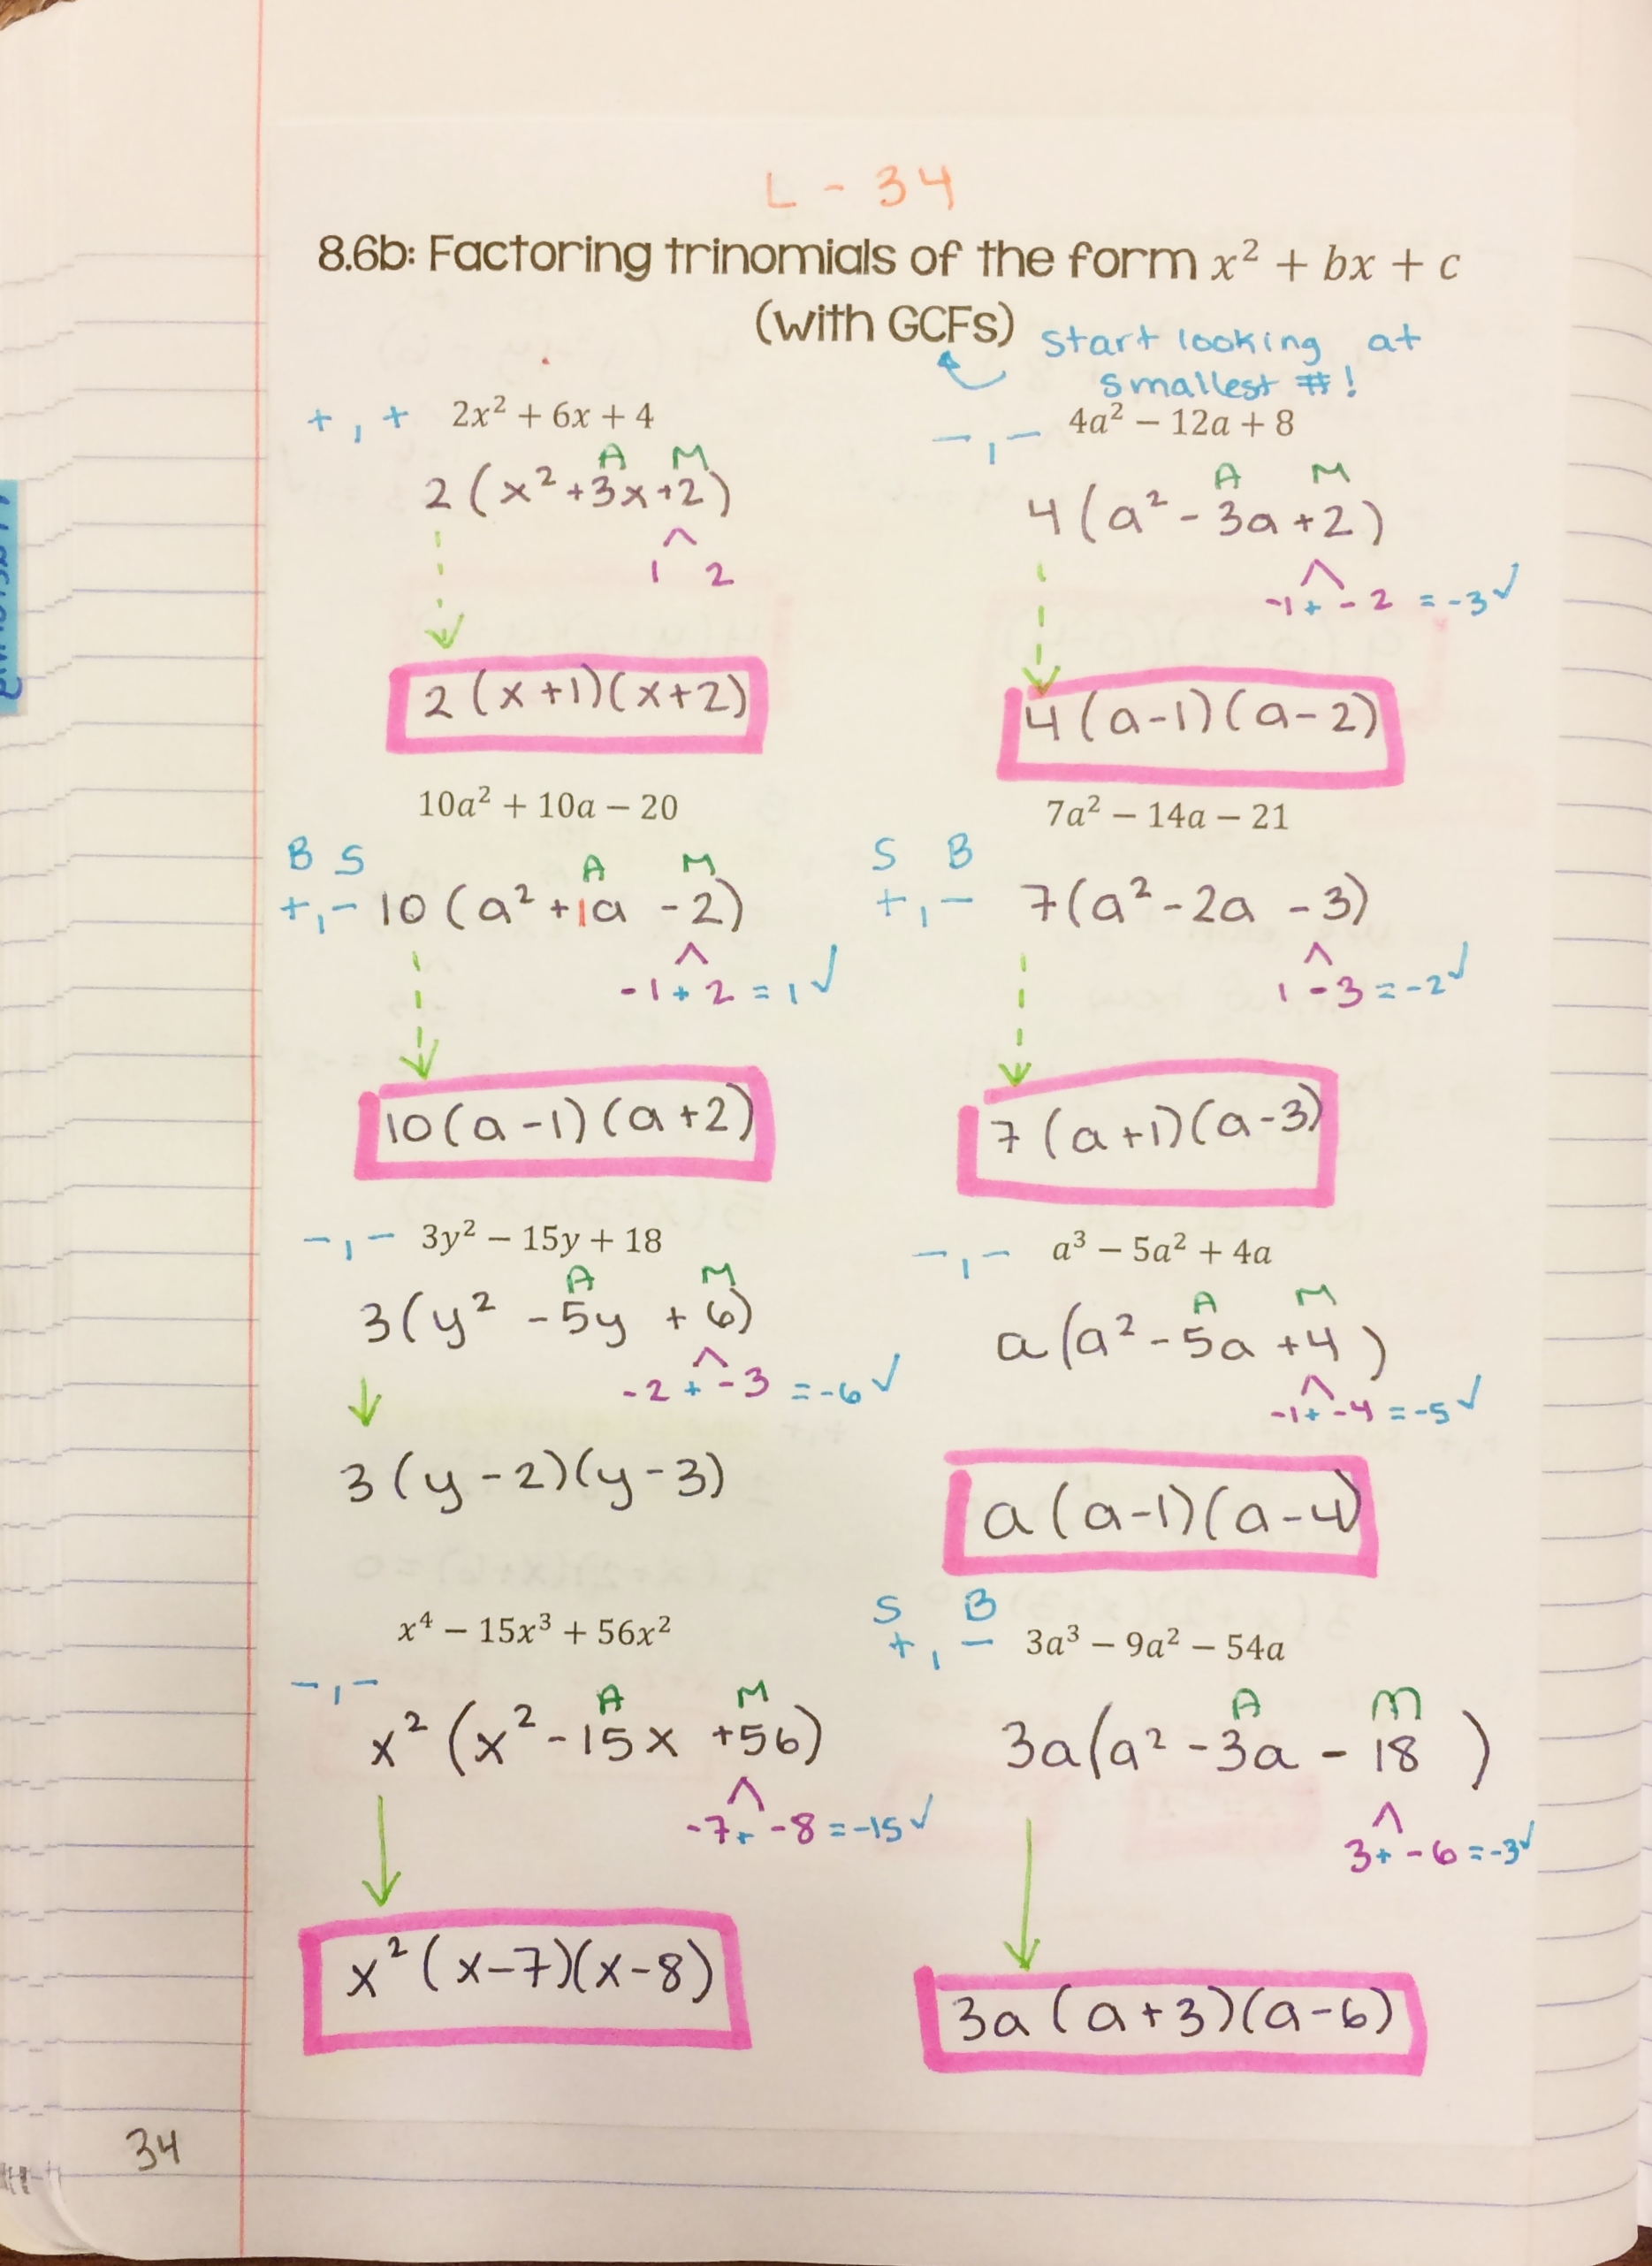 L - 34
8.6b: Factoring trinomials of the form x² + bx + c
(with GCFs)
start looking at
smallest #!
+ , + 2x² + 6x + 4
A M
2(x²+3x+2)
1 2
2(x+1)(x+2)
- , - 4a² − 12a + 8
A M
4(a²-3a+2)
-1 + -2 = -3 ✓
4(a-1)(a-2)
10a² + 10a − 20
B S A M
+ , - 10(a²+1a-2)
-1 + 2 = 1 ✓
10(a-1)(a+2)
7a² − 14a − 21
S B
+ , - 7(a²-2a-3)
1 -3 = -2 ✓
7(a+1)(a-3)
- , - 3y² − 15y + 18
A M
3(y²-5y+6)
-2 + -3 = -6 ✓
3(y-2)(y-3)
- , - a³ − 5a² + 4a
A M
a(a²-5a+4)
-1 + -4 = -5 ✓
a(a-1)(a-4)
x⁴ − 15x³ + 56x²
- , - A M
x²(x²-15x+56)
-7 + -8 = -15 ✓
x²(x-7)(x-8)
S B
+ , - 3a³ − 9a² − 54a
A M
3a(a²-3a-18)
3 + -6 = -3 ✓
3a(a+3)(a-6)
34